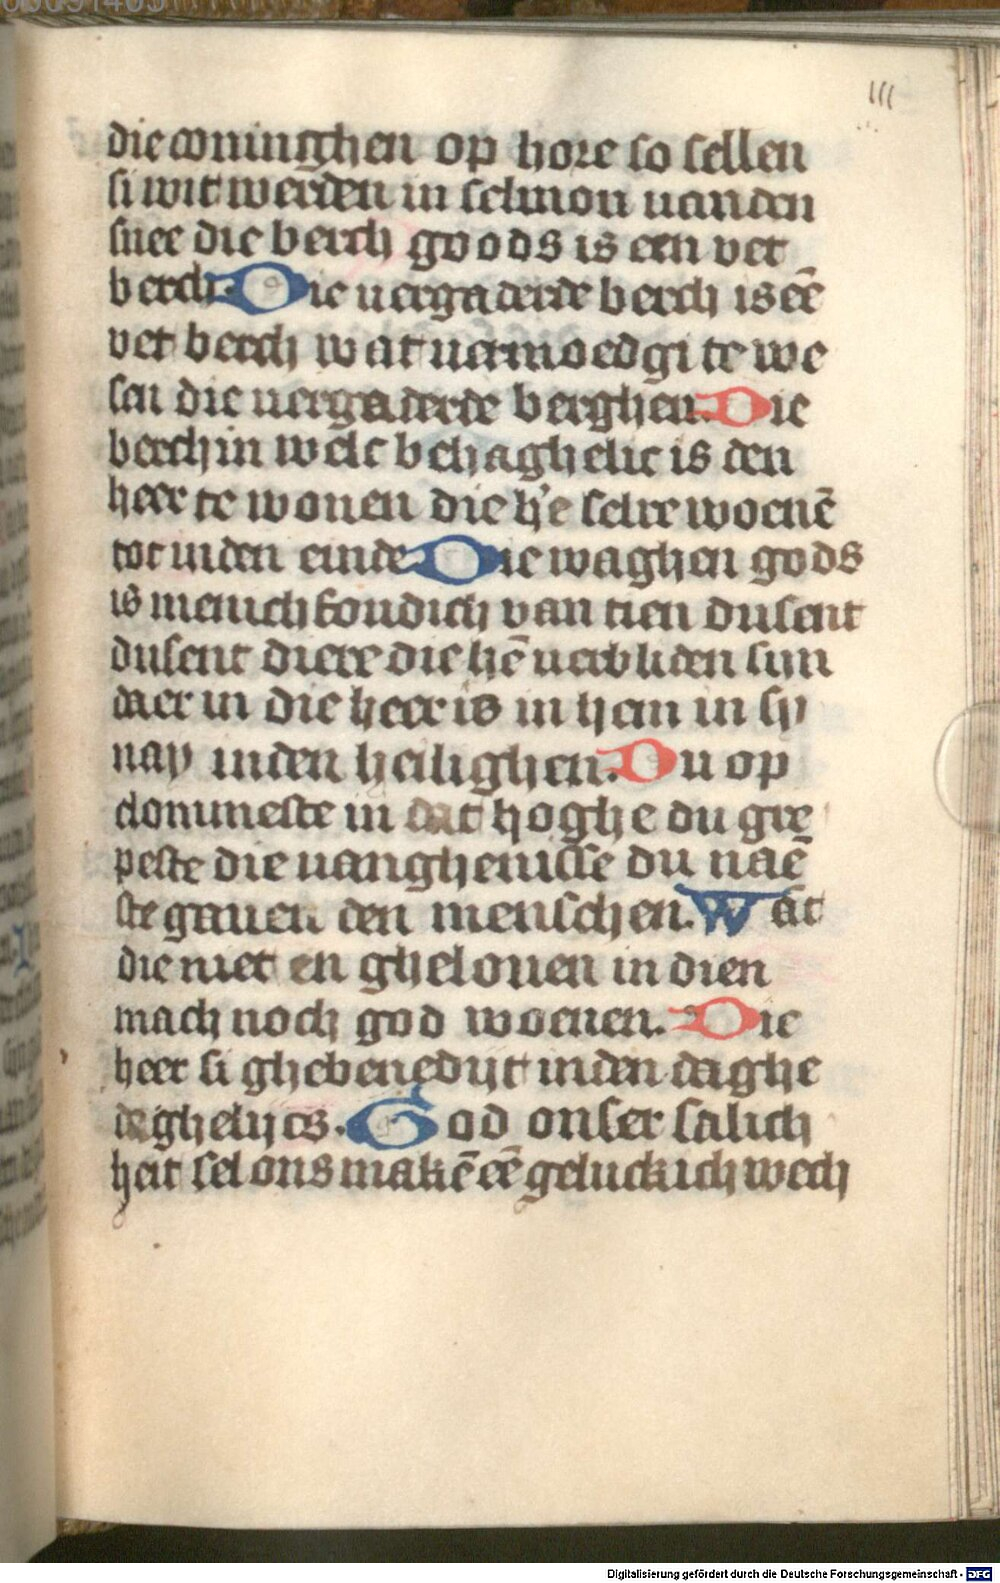 III
die coninghen op hore so sellen
si wit werden in selmon uanden
snee die berch goods is een vet
berch. Die uergaderde berch is eē
vet berch wat uermoed gi te we
sen die uergaderde berghen. Die
berch in welc behaghelic is den
heer te wonen die h'e selre woenē
tot inden einde Die waghen gods
is menichfoudich van tien dusent
dusent diere die hē uerbliden sijn
daer in die heer is in hem in sy
nay inden heilighen. Du op
clommeste in dat hoghe du gre
peste die uanghenisse du naē
ste gauen den menschen. Wat
die niet en ghelouen in dien
mach noch god woenen. Die
heer si ghebenedijt inden daghe
daghelijcs. God onser salich
heit sel ons makē eē geluckich wech
Digitalisierung gefördert durch die Deutsche Forschungsgemeinschaft - DFG